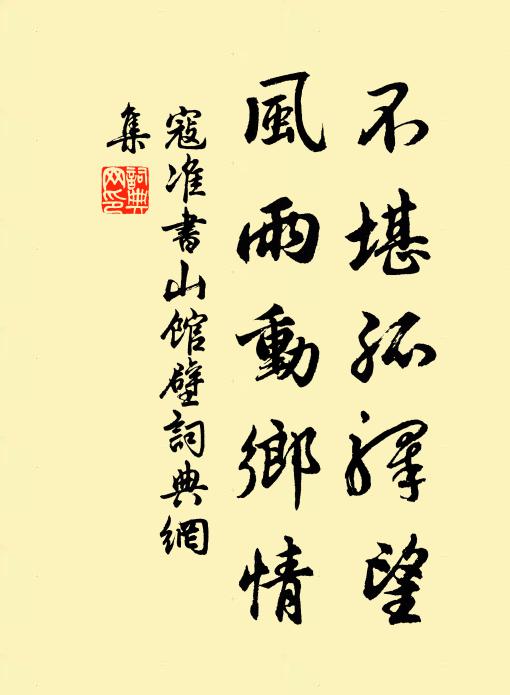 不堪孤驛望
風雨動鄉情
寇准書山館壁詞典網
集
詞典
网印